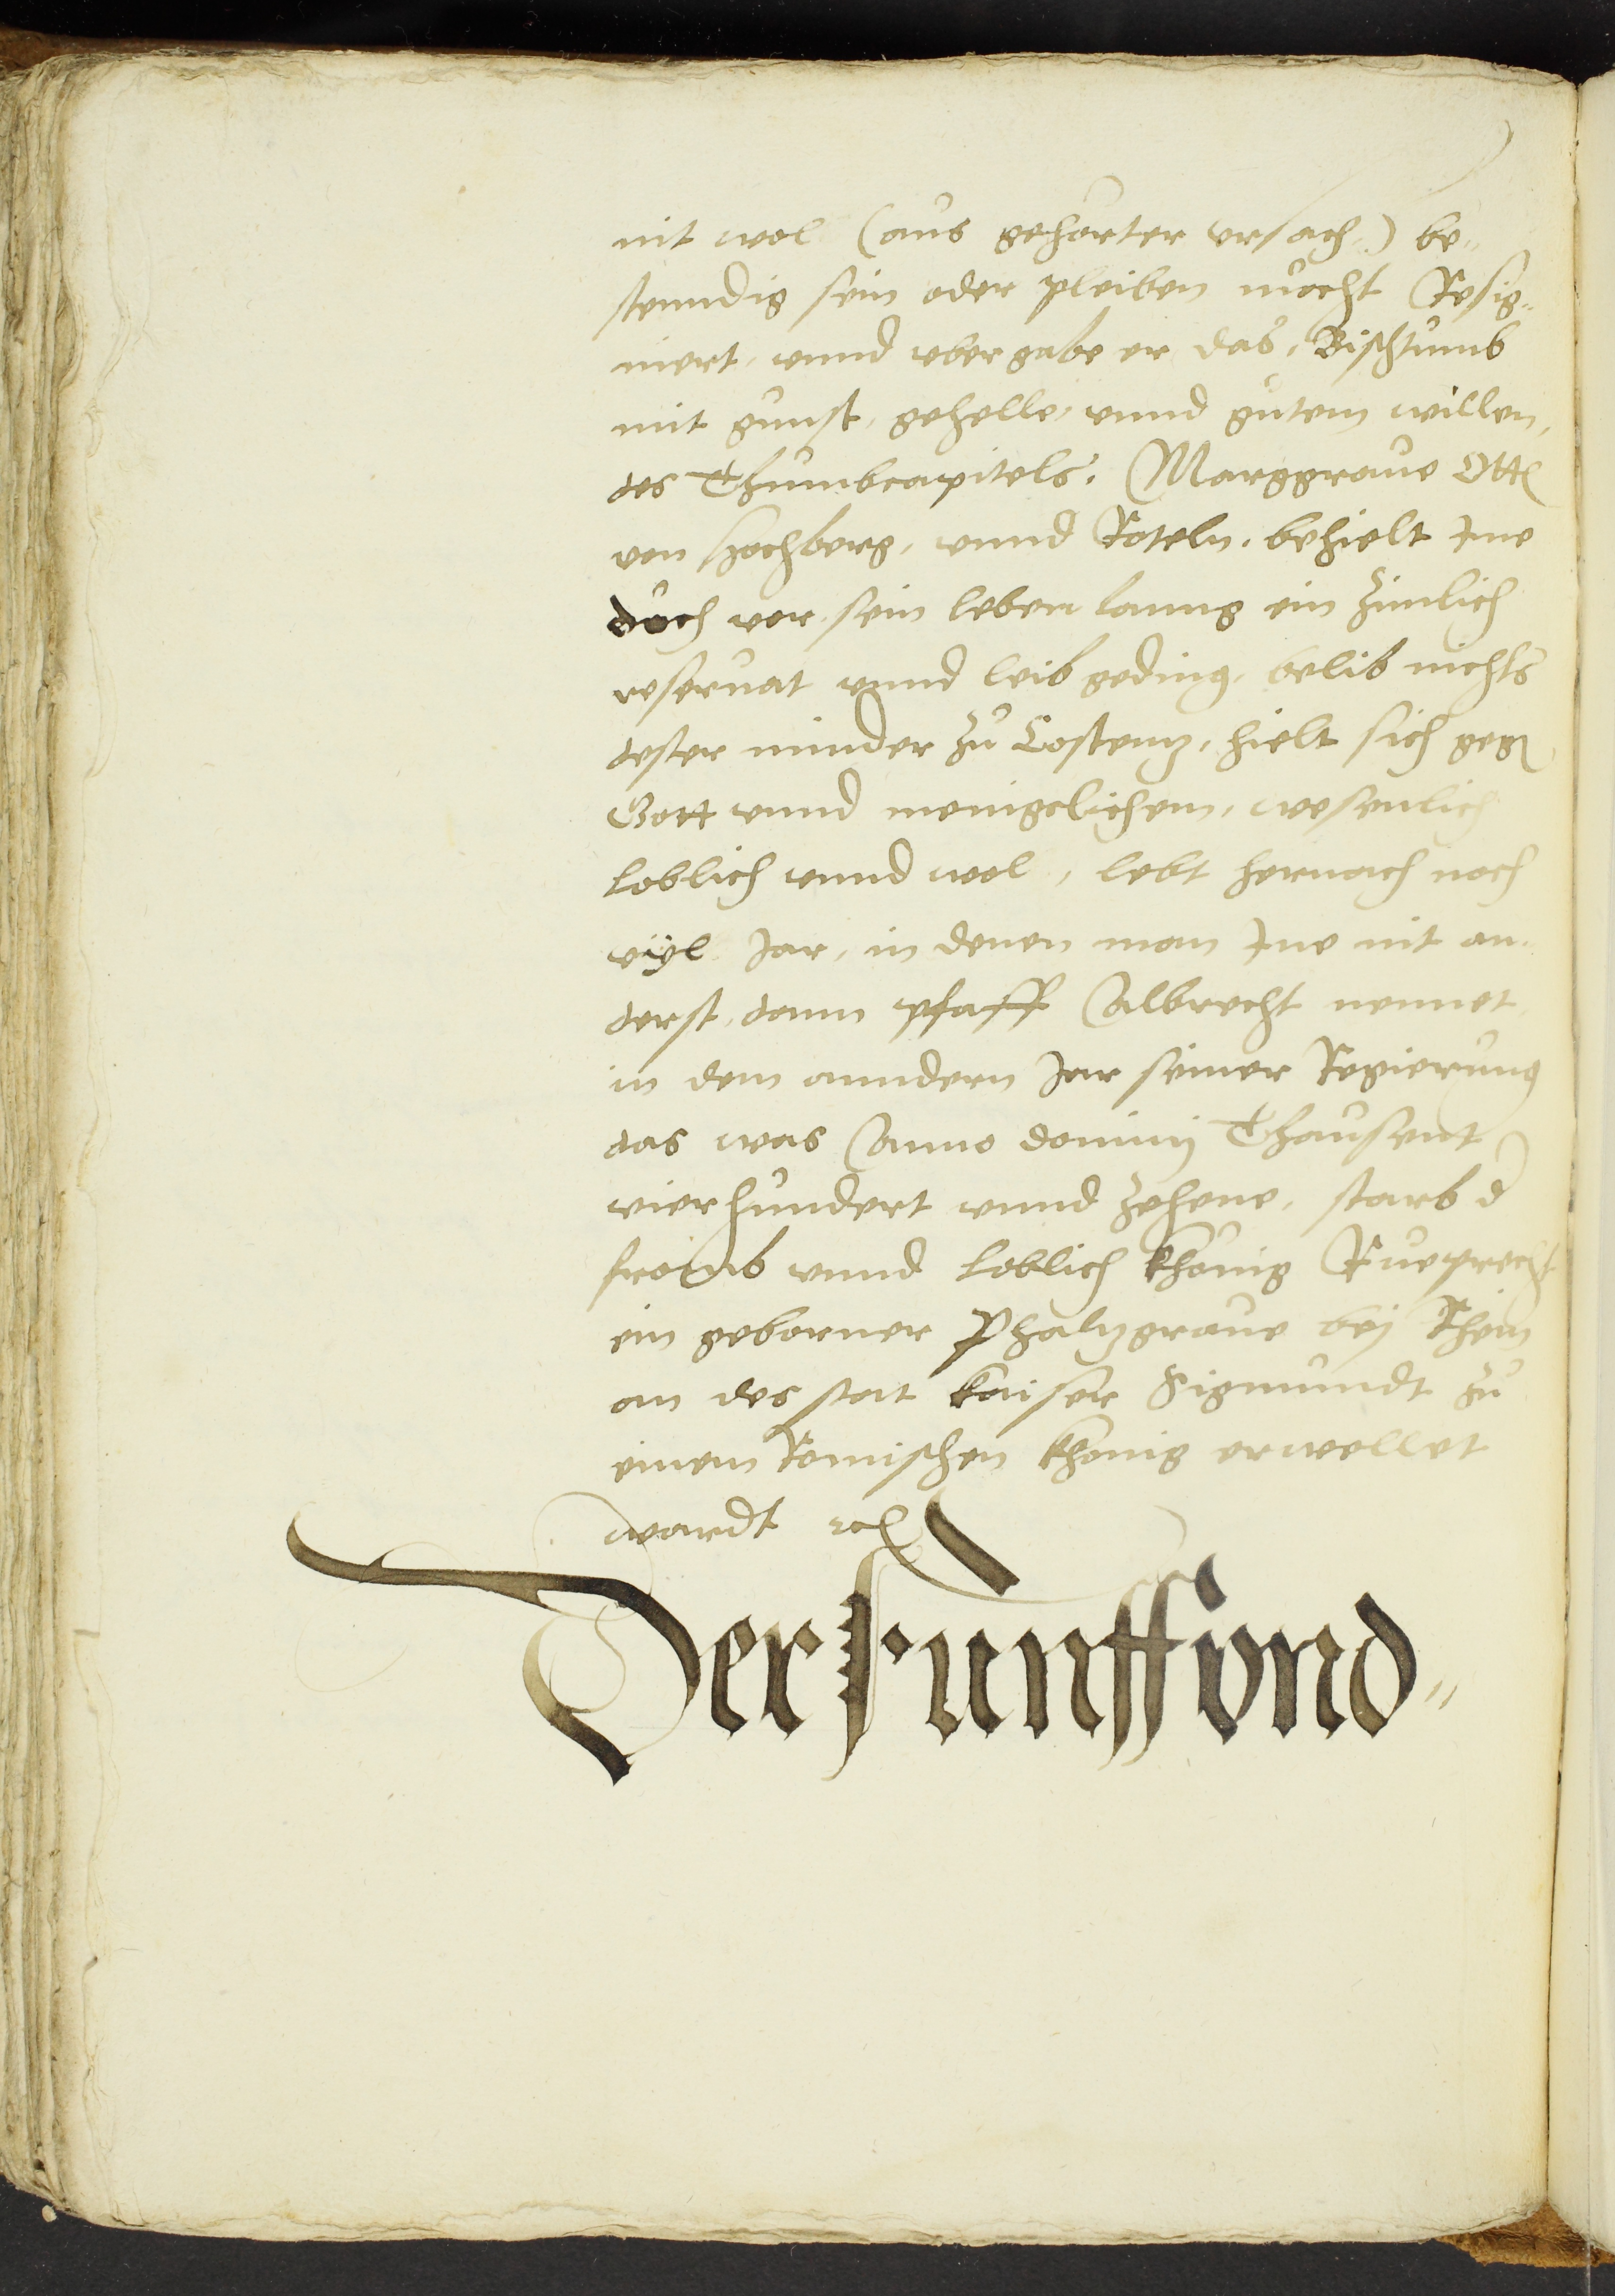 nit wol (aus gehorter ursach) be„
stenndig sein oder pleiben mocht Resig„
niert, unnd ubergabe er das, Bischtumb
mit gunst, gehelle, unnd gutem willen,
des Thumbcapitels. Marggraue Ott
von Hochberg, unnd Roteln, behielt jme
doch vor sein leben lanng ein zimlich
reseruat unnd leibgeding, belib nichts
dester minder zu Costentz, hielt sich geg
Gott unnd menigelichem, wesenlich
loblich unnd wol, lebt hernach noch
vyl Jar, in denen man jme nit an„
derst, dann pfaff Albrecht nennet
in dem anndern Jar seiner Regierung
das was Anno dominj Thausent
vierhundert unnd zehene, starb d
fromb unnd loblich Khönig Rueprecht
ein geborner Phalzgraue bej Rhein
an des stat Kaiser Sigmundt zu
einem Romischen Khonig erwellet
wardt rc
Der funffvnd„